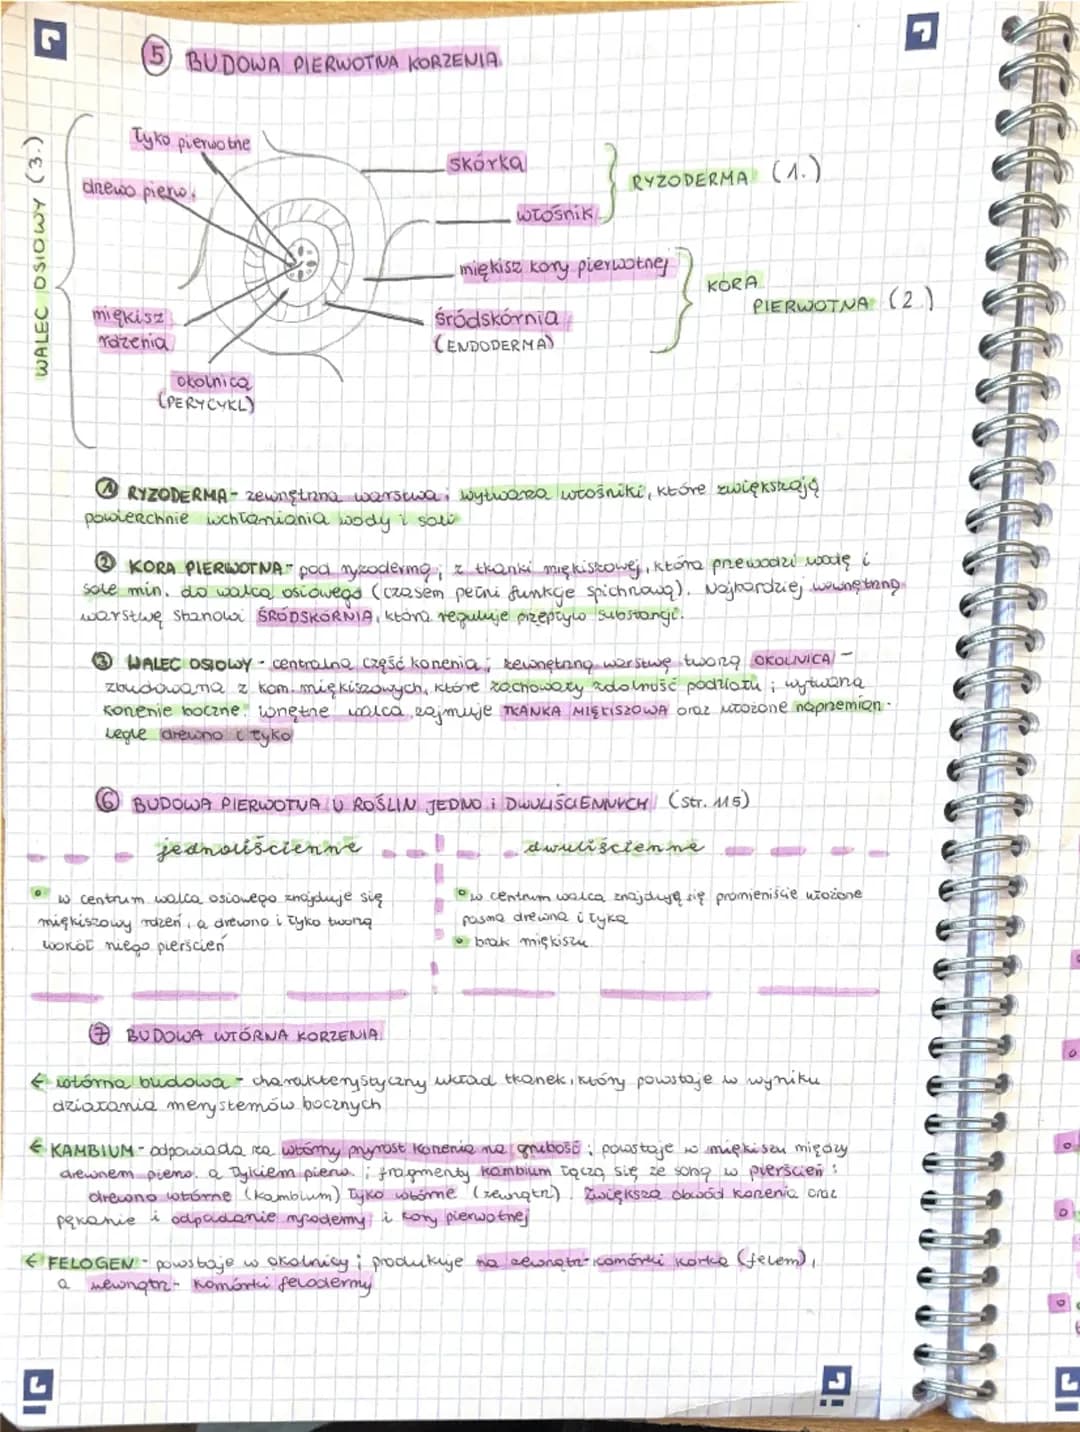 5 BUDOWA PIERWOTNA KORZENIA
WALEC OSIOWY (3.)
Łyko pierwotne
drewo pierw.
miękisz
rdzenia
okolnica
(PERYCYKL)
skórka
włośnik
RYZODERMA (1.)
miękisz kory pierwotnej
śródskórnia
(ENDODERMA)
KORA
PIERWOTNA (2.)
1 RYZODERMA - zewnętrzna warstwa; wytwarza włośniki, które zwiększają
powierzchnie wchłaniania wody i soli
2 KORA PIERWOTNA - pod ryzodermą; z tkanki miękiszowej, która przewodzi wodę i
sole min. do walca osiowego (czasem pełni funkcje spichrzową). Najbardziej wewnętrzną
warstwę stanowi ŚRÓDSKÓRNIA, która reguluje przepływ substancji.
3 WALEC OSIOWY - centralna część korzenia; zewnętrzną warstwę tworzą OKOLNICA -
zbudowana z kom. miękiszowych, które zachowały zdolność podziału; wytwarza
korzenie boczne. Wnętrze walca zajmuje TKANKA MIĘKISZOWA oraz ułożone naprzemian-
legle drewno i łyko
6 BUDOWA PIERWOTNA U ROŚLIN JEDNO i DWULIŚCIENNYCH (str. 115)
jednoliścienne
dwuliścienne
w centrum walca osiowego znajduje się
miękiszowy rdzeń, a drewno i łyko tworzą
wokół niego pierścień
w centrum walca znajdują się promieniście ułożone
pasma drewna i łyka
brak miękiszu
7 BUDOWA WTÓRNA KORZENIA
← wtórna budowa - charakterystyczny układ tkanek, który powstaje w wyniku
działania merystemów bocznych
← KAMBIUM - odpowiada za wtórny przyrost korzenia na grubość; powstaje w miękiszu między
drewnem pierw. a łykiem pierw.; fragmenty kambium łączą się ze sobą w pierścień:
drewno wtórne (kambium) łyko wtórne (zewnątrz). Zwiększa obwód korzenia oraz
pękanie i odpadanie ryzodermy i kory pierwotnej
← FELOGEN - powstaje w okolnicy; produkuje na zewnątrz - komórki korka (felem),
a wewnątrz - komórki felodermy